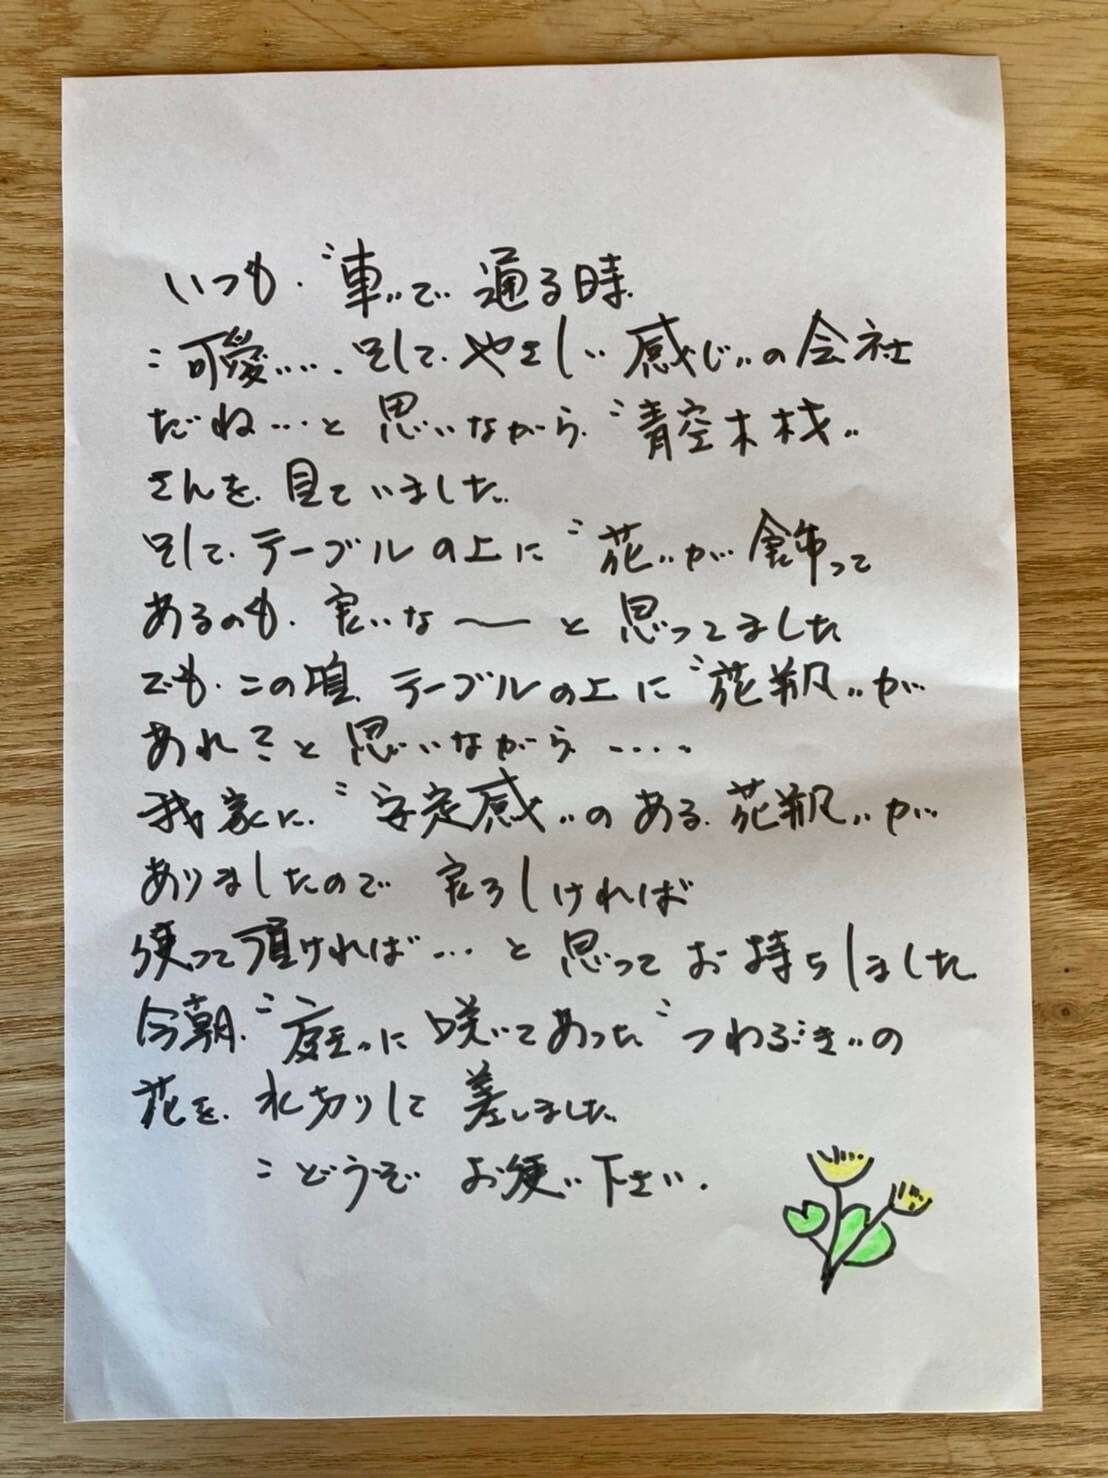 いつも、"車"で通る時
"可愛い…、そして、やさしい感じ"の会社
だね…と思いながら、"青空木材"
さんを、見ていました。
そして、テーブルの上に"花"が飾って
あるのも、良いな〜と思ってました
でも、この頃、テーブルの上に"花瓶"が
あれ?と思いながら‥‥
我家に"安定感"のある、花瓶"が
ありましたので 宜ろしければ
使って頂ければ…と思ってお持ちしました。
今朝、"庭"に咲いてあった"つわぶき"の
花を、水切りして差しました。
"どうぞ お使い下さい。